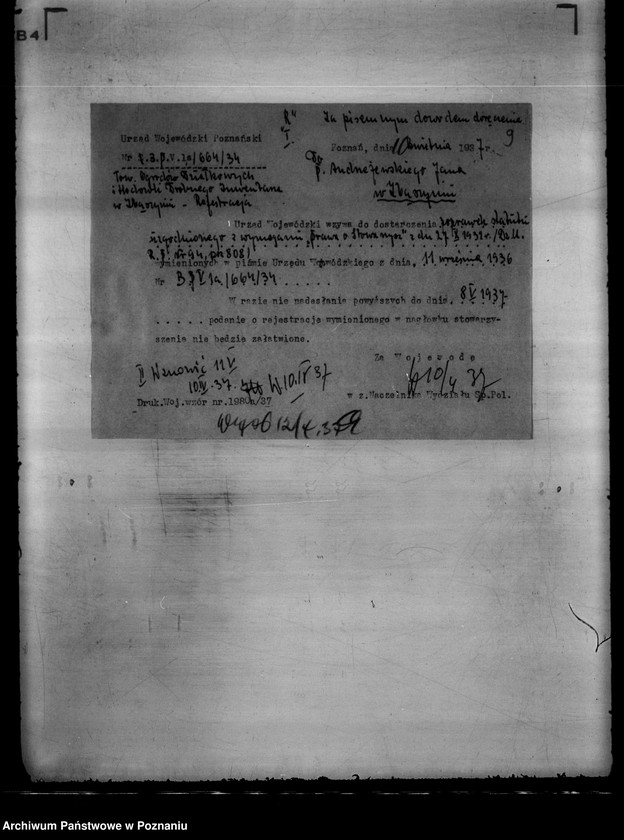 B4
Za pisemnym dowodem doręczenia
9
Urząd Wojewódzki Poznański
Poznań, dnia 10 kwietnia 1937 r.
Nr 664/34
Tow. Ogrodów Działkowych
i Hodowli Drobnego Inwentarza
w Zbąszyniu - Rejestracja
P. Andrzejewskiego Jana
w Zbąszyniu
Urząd Wojewódzki wzywa do dostarczenia poprawek statutu
uzgodnionego z wymogami "Prawa o Stowarzysz" z dn. 27 X 1932 r. /Dz.U.
R.P. Nr 94, poz. 808/
wymienionych w piśmie Urzędu Wojewódzkiego z dnia. 11 września 1936
Nr 1a/664/34 . . . . .
W razie nie nadesłania powyższych do dnia. 8 V 1937
. . . . . podanie o rejestrację wymienionego w nagłówku stowarzy-
szenia nie będzie załatwione.
Za Wojewodę
II Wznowić 11 V
10.IV.37. 10.IV 37
10/4 37
Druk.Woj.wzór nr.1980a/37
w z.Naczelnika Wydziału Sp.Pol.
12/4.37
Archiwum Państwowe w Poznaniu